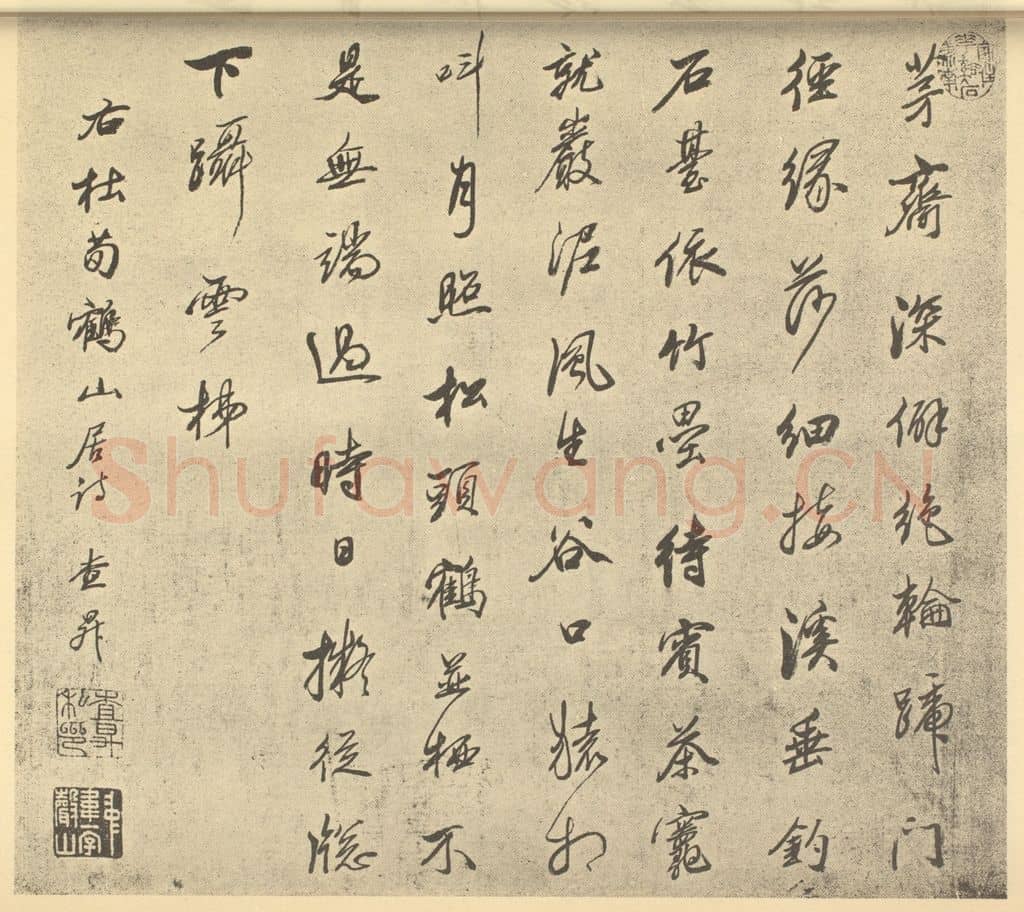 茅齋深僻絕輪蹄門
徑緣莎細接溪垂釣
石臺依竹壘待賓茶竈
就巖泥風生谷口猿相
叫月照松頭鶴並栖不
是無端過時日擬從牕
下躡雲梯
右杜荀鶴山居詩 查昇
查昇私印
Shufawang.CN